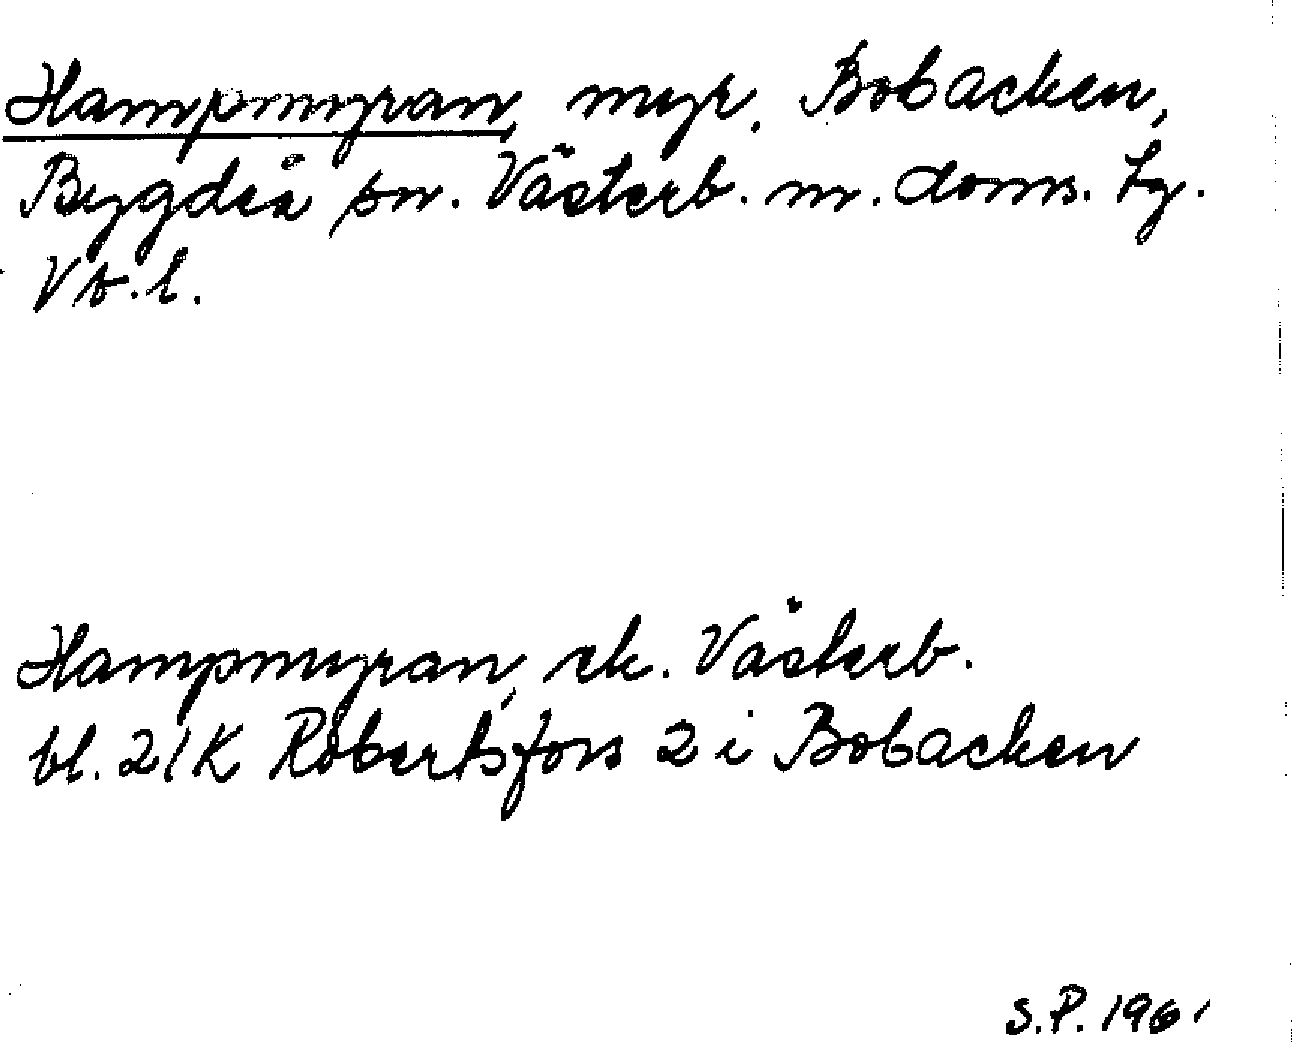 Hampmyran, myr, Bobacken,
Bygdeå sn. Västerb. n. doms. tg.
Vb. l.
Hampmyran, ek. Västerb.
bl. 21K Robertsfors 2 i Bobacken
S.P. 1961